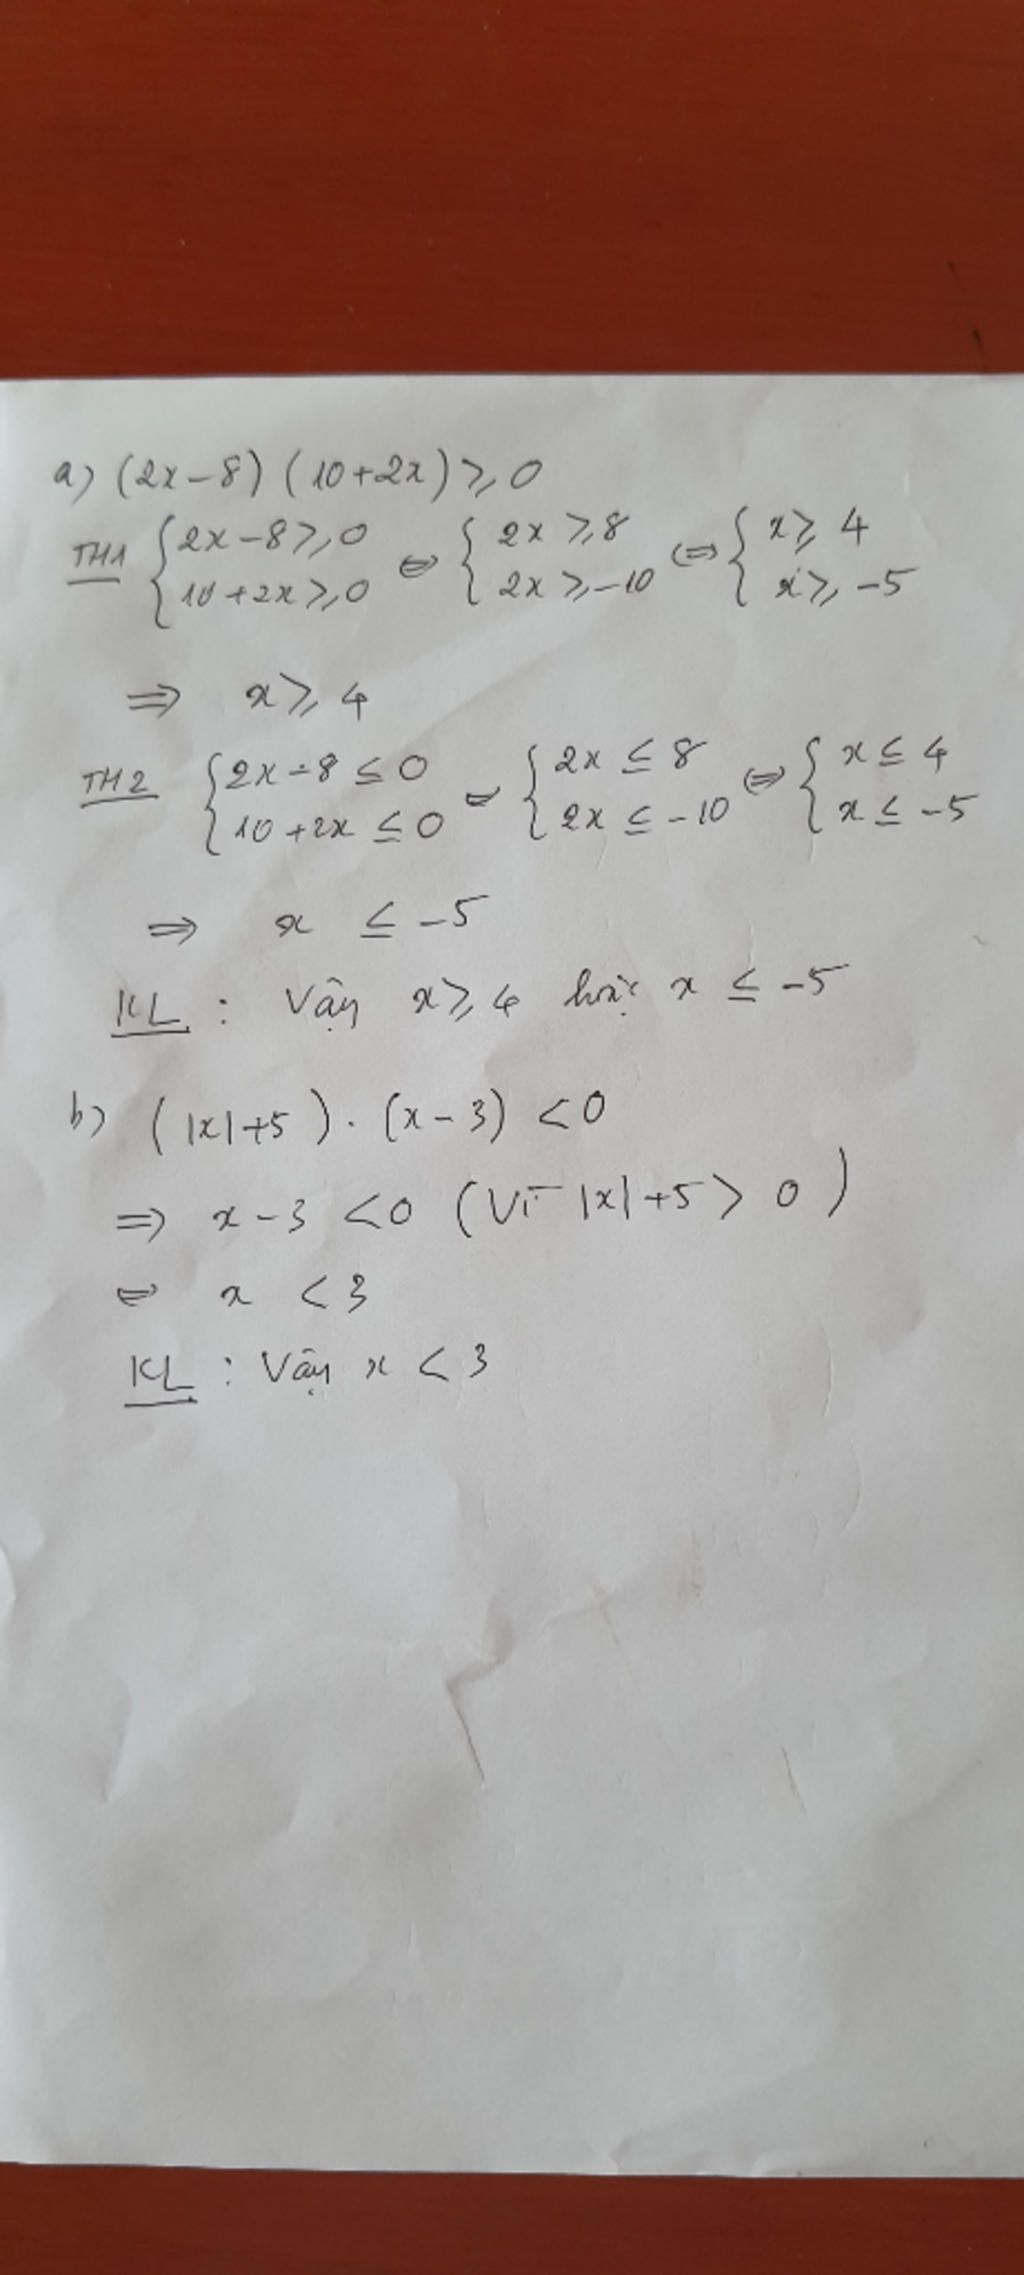 a) (2x-8) (10+2x) ≥ 0
TH1 { 2x-8 ≥ 0 ⇔ { 2x ≥ 8 ⇔ { x ≥ 4
10+2x ≥ 0 2x ≥ -10 x ≥ -5
⇒ x ≥ 4
TH2 { 2x-8 ≤ 0 ⇔ { 2x ≤ 8 ⇔ { x ≤ 4
10+2x ≤ 0 2x ≤ -10 x ≤ -5
⇒ x ≤ -5
KL : Vậy x ≥ 4 hoặc x ≤ -5
b) (|x|+5) . (x-3) < 0
⇒ x-3 < 0 (Vì |x|+5 > 0)
⇔ x < 3
KL : Vậy x < 3